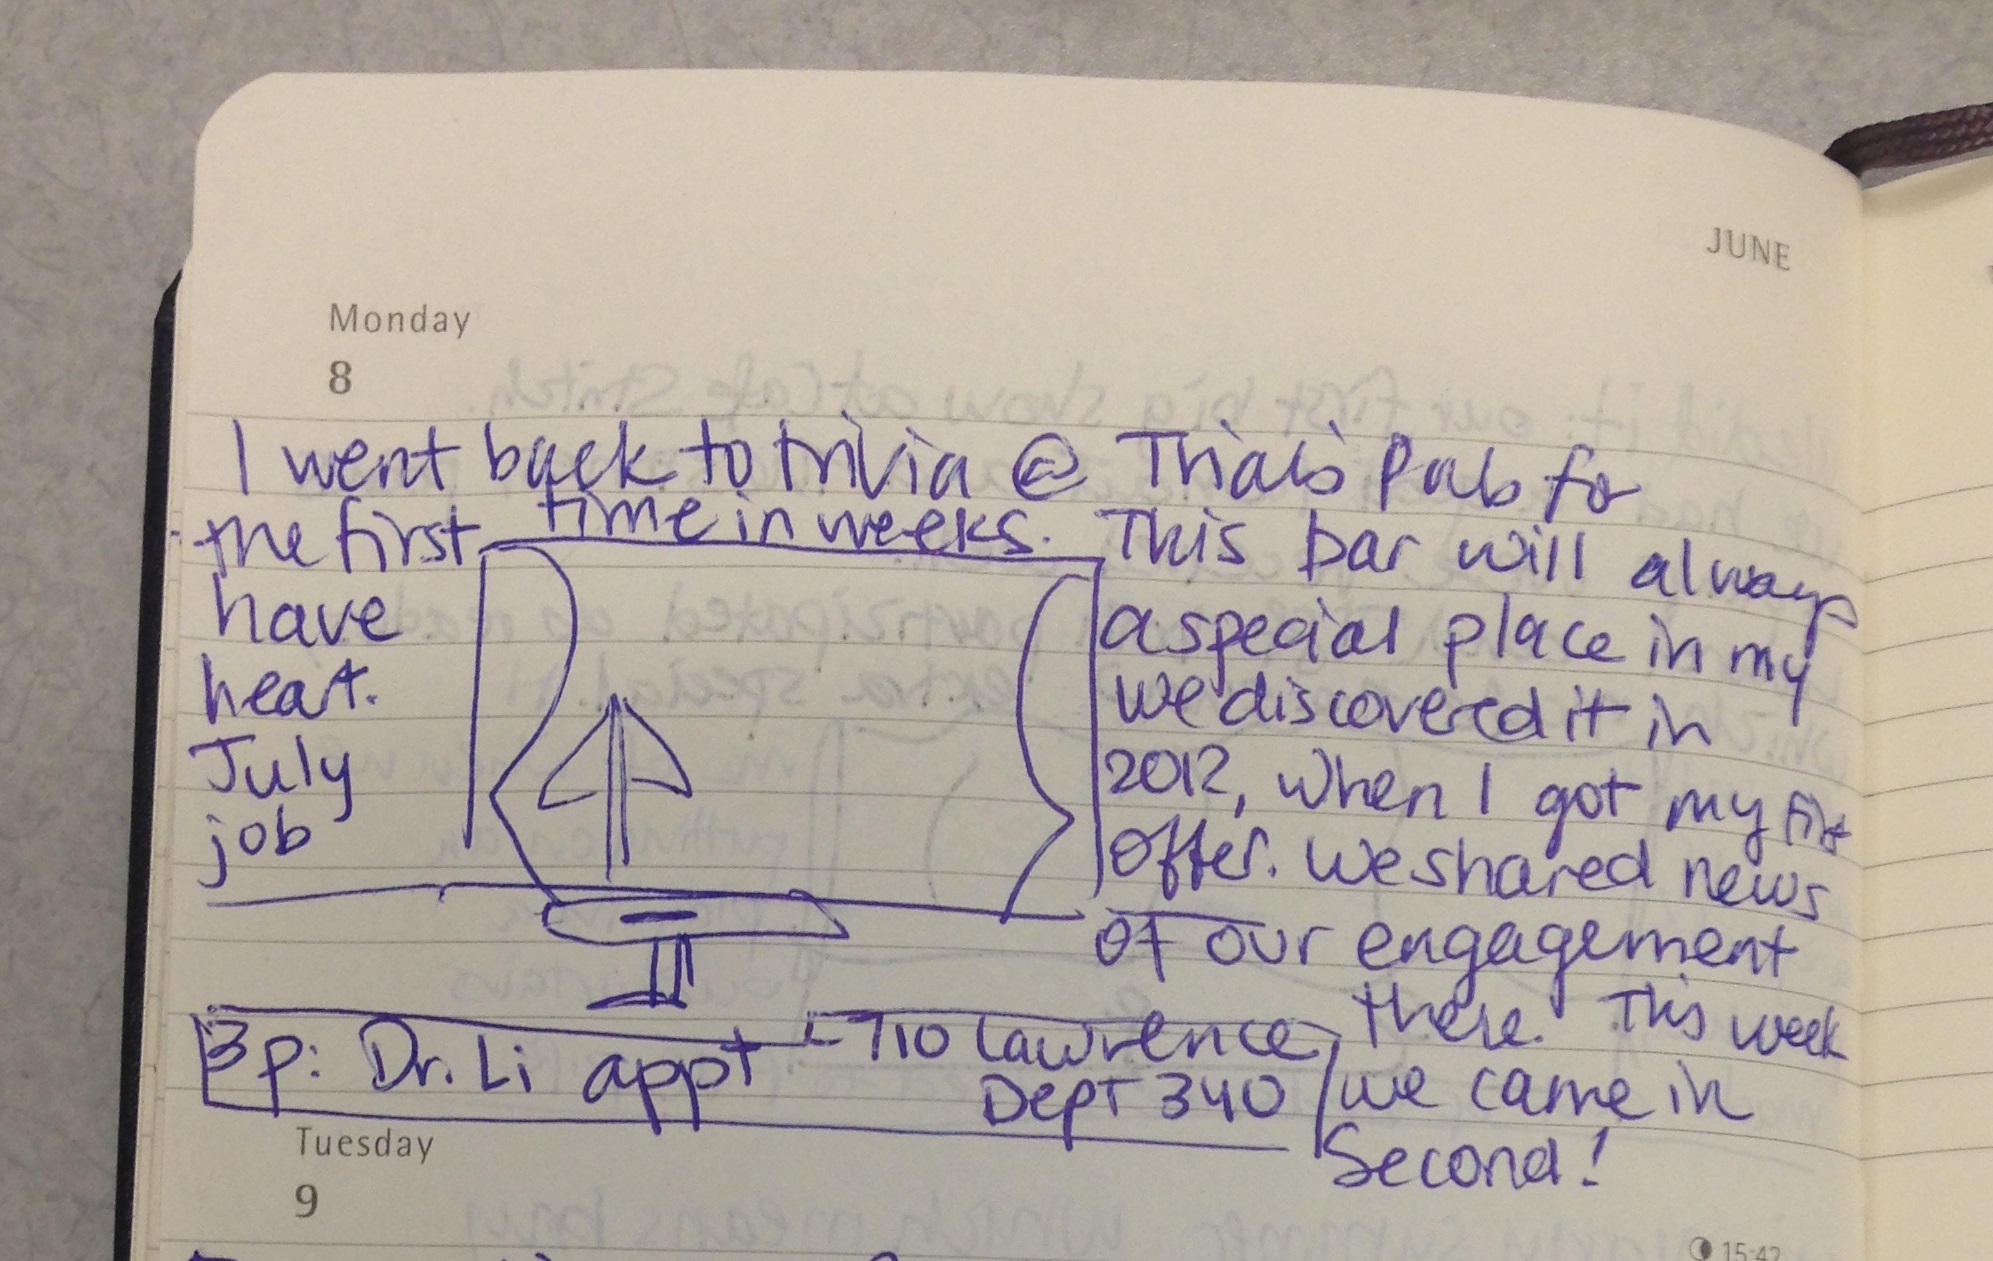 JUNE
Monday
8
I went back to trivia @ Pub for
the first time in weeks. This bar will always
have a special place in my
heart. we discovered it in
July 2012, when I got my first
job offer. we shared news
of our engagement
there. This week
we came in
Second!
3p: Dr. Li appt - 710 Lawrence
Dept 340
Tuesday
9
15:42